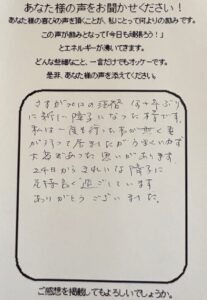 あなた様の声をお聞かせください!
あなた様の喜びの声を頂くことが、私にとって何よりの励みです。
この声が励みとなって「今日も頑張ろう!」
とエネルギーが湧いてきます。
どんな些細なこと、一言だけでもオッケーです。
是非、あなた様の声を添えてください。
さすがプロの 何十年ぶり
に新しい障子になった様です。
私は一度も行った
が うまくいかず
大変だった思いがあります。
24日からきれいな障子に
気持良く過ごしています
ありがとうございました。
ご感想を掲載してもよろしいでしょうか。